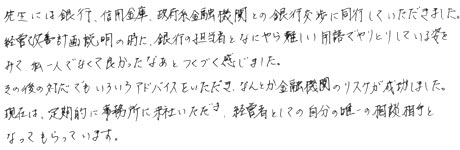 先生には銀行、信用金庫、政府系金融機関との銀行交渉に同行していただきました。
経営改善計画説明の時に、銀行の担当者となにやら難しい用語でやりとりしている姿を
みて、私一人でなくて良かったなあとつくづく感じました。
その後の対応でもいろいろアドバイスをいただき、なんとか金融機関のリスケが成功しました。
現在は、定期的に事務所に来社いただき、経営者としての自分の唯一の相談相手と
なってもらっています。